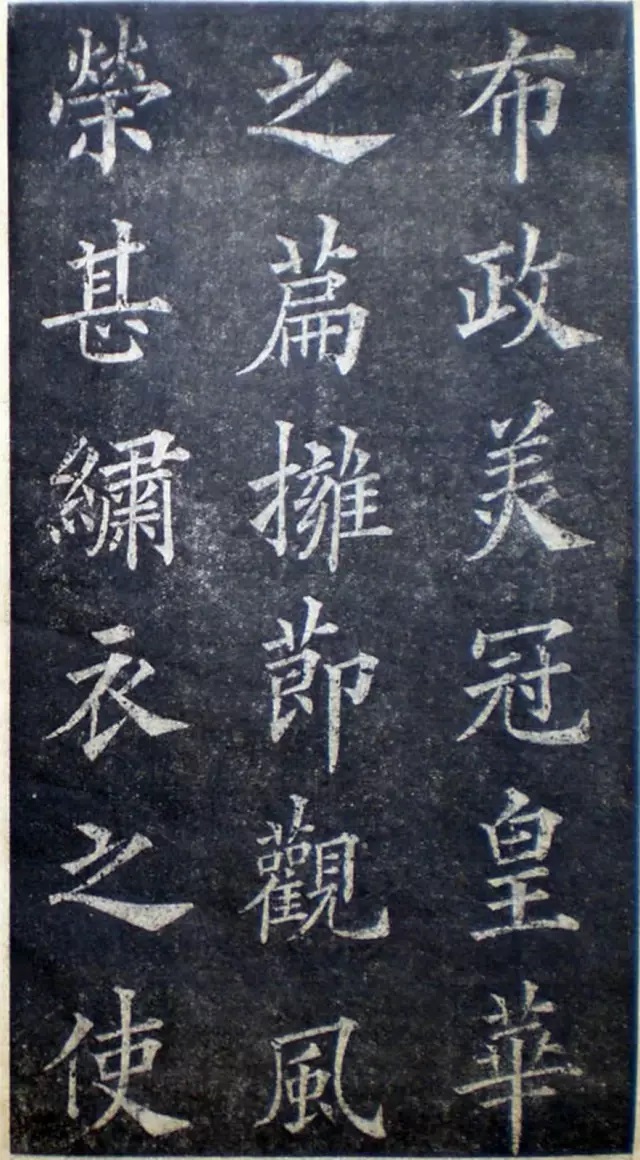 布政美冠皇華
之萹擁莭觀風
榮甚繡衣之使